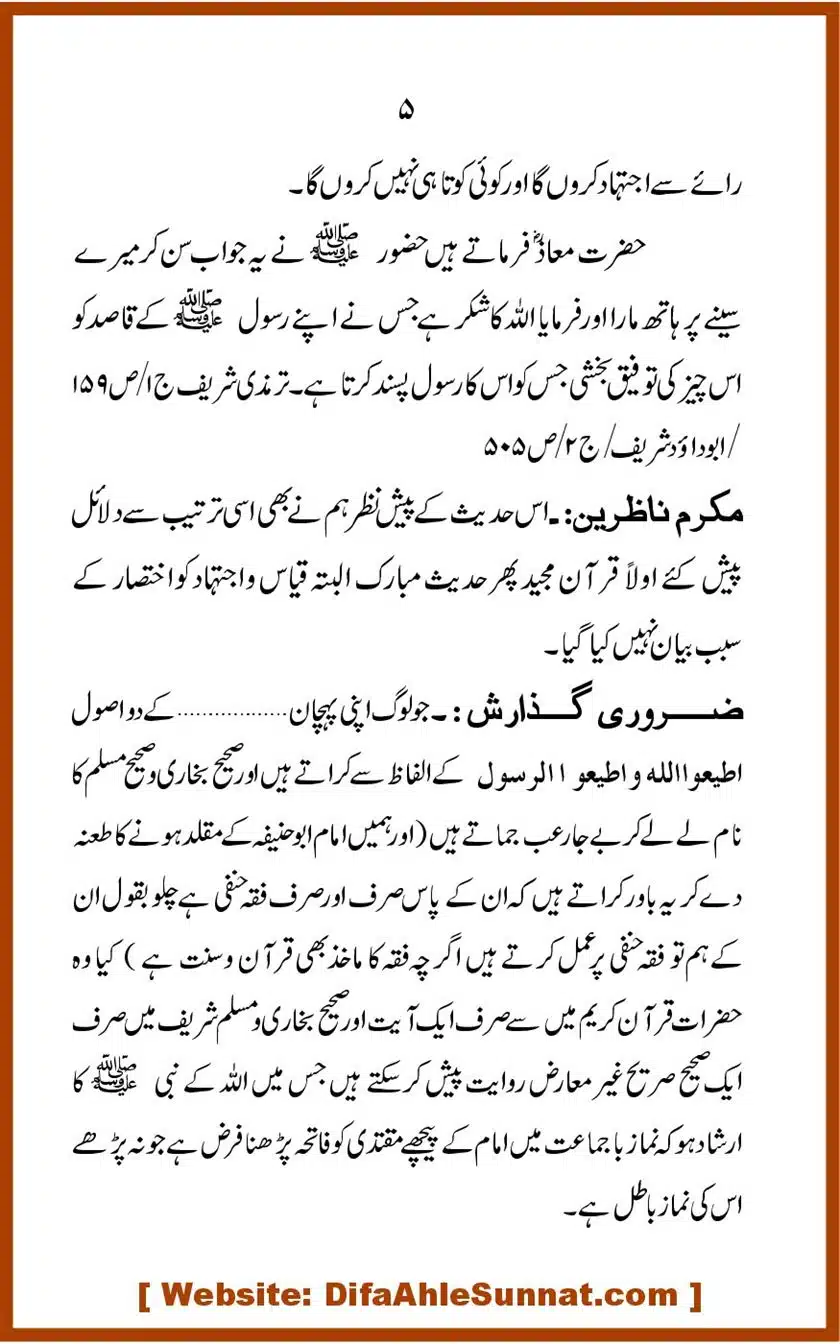 ۵
رائے سے اجتہاد کروں گا اور کوئی کوتاہی نہیں کروں گا۔
حضرت معاذؓ فرماتے ہیں حضور ﷺ نے یہ جواب سن کر میرے
سینے پر ہاتھ مارا اور فرمایا اللہ کا شکر ہے جس نے اپنے رسول ﷺ کے قاصد کو
اس چیز کی توفیق بخشی جس کو اس کا رسول پسند کرتا ہے۔ ترمذی شریف ج۱/ص۱۵۹
/ابوداؤد شریف/ج۲/ص۵۰۵
مکرم ناظرین:۔ اس حدیث کے پیش نظر ہم نے بھی اسی ترتیب سے دلائل
پیش کئے اولاً قرآن مجید پھر حدیث مبارک البتہ قیاس و اجتہاد کو اختصار کے
سبب بیان نہیں کیا گیا۔
ضروری گذارش:۔ جو لوگ اپنی پہچان.................. کے دو اصول
اطیعوا الله و اطیعو ا الرسول کے الفاظ سے کراتے ہیں اور صحیح بخاری و صحیح مسلم کا
نام لے لے کر بے جا رعب جماتے ہیں (اور ہمیں امام ابوحنیفہ کے مقلد ہونے کا طعنہ
دے کر یہ باور کراتے ہیں کہ ان کے پاس صرف اور صرف فقہ حنفی ہے چلو بقول ان
کے ہم تو فقہ حنفی پر عمل کرتے ہیں اگر چہ فقہ کا ماخذ بھی قرآن وسنت ہے ) کیا وہ
حضرات قرآن کریم میں سے صرف ایک آیت اور صحیح بخاری و مسلم شریف میں صرف
ایک صحیح صریح غیر معارض روایت پیش کر سکتے ہیں جس میں اللہ کے نبی ﷺ کا
ارشاد ہو کہ نماز با جماعت میں امام کے پیچھے مقتدی کو فاتحہ پڑھنا فرض ہے جو نہ پڑھے
اس کی نماز باطل ہے۔
[ Website: DifaAhleSunnat.com ]